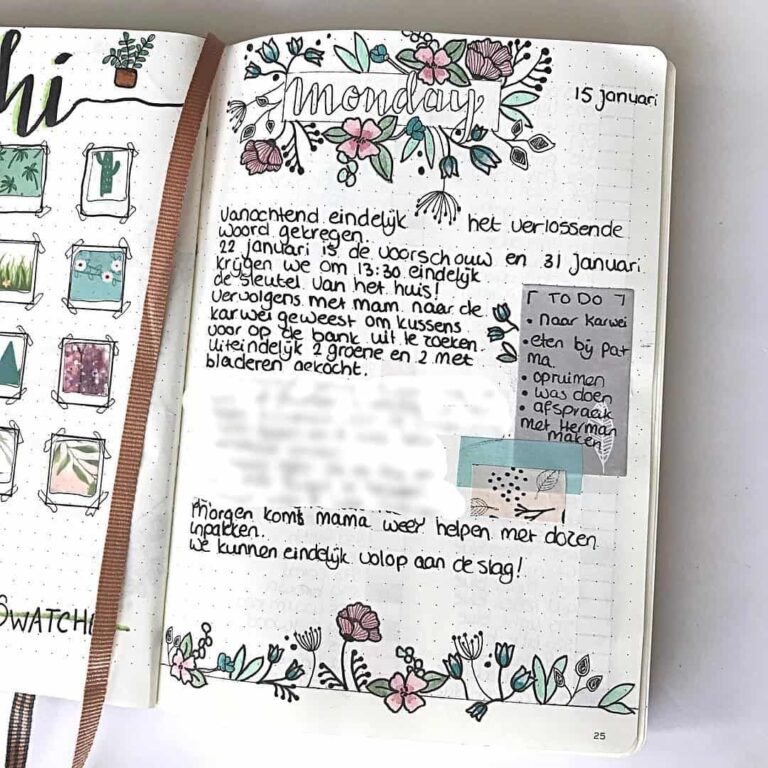 hi
SWATCH
monday
15 januari
vanochtend eindelijk het verlossende
woord gekregen.
22 januari is de voorschouw en 31 januari
krijgen we om 13:30 eindelijk
de sleutel van het huis!
vervolgens met mam naar de
karwei geweest om kussens
voor op de bank uit te zoeken.
uiteindelijk 2 groene en 2 met
bladeren gekocht.
[ TO DO ]
• naar karwei
• eten bij pat
ma
• opruimen
• was doen
• afspraak
met Herman
maken
morgen komt mama weer helpen met dozen
inpakken.
we kunnen eindelijk volop aan de slag!
25